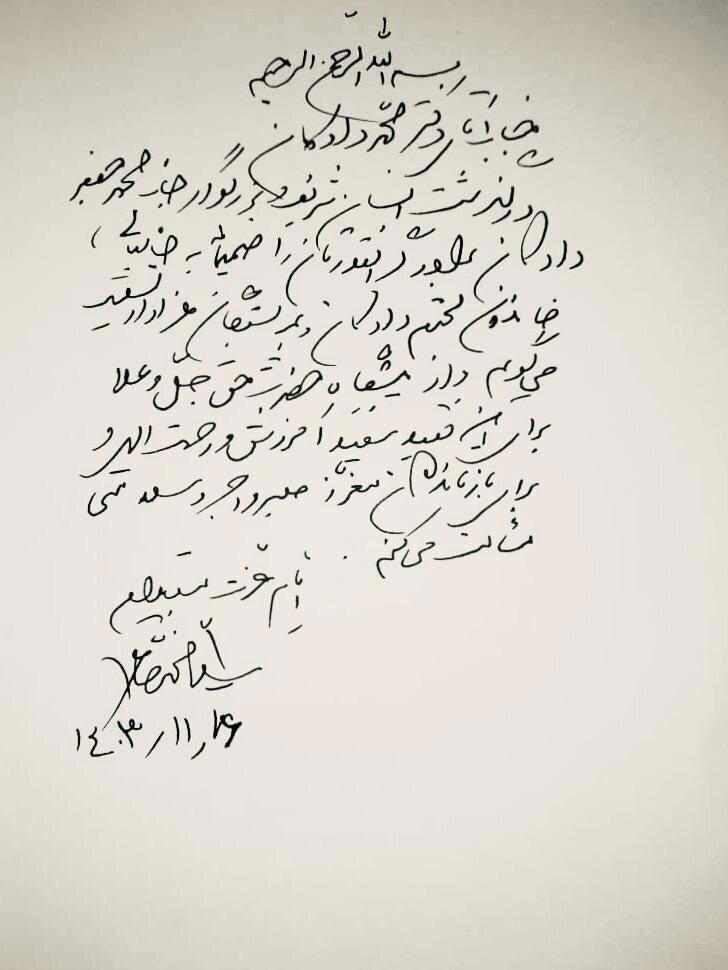 بسم الله الرحمن الرحیم
جناب آقای دکتر محمد دادکان
درگذشت انسان شریف و بزرگوار جناب محمد جعفر
دادکان برادر گرانقدرتان را صمیمانه به جنابعالی،
خاندان محترم دادکان و بستگان عزادار تسلیت
می‌گویم و از پیشگاه حضرت حق جلّ و علا
برای آن فقید سعید آمرزش و رحمت الهی و
برای بازماندگان معزز صبر و اجر و سلامتی
مسألت می‌کنم.
ایام عزت مستدام
سید محمد خاتمی
۱۴۰۳/۱۱/